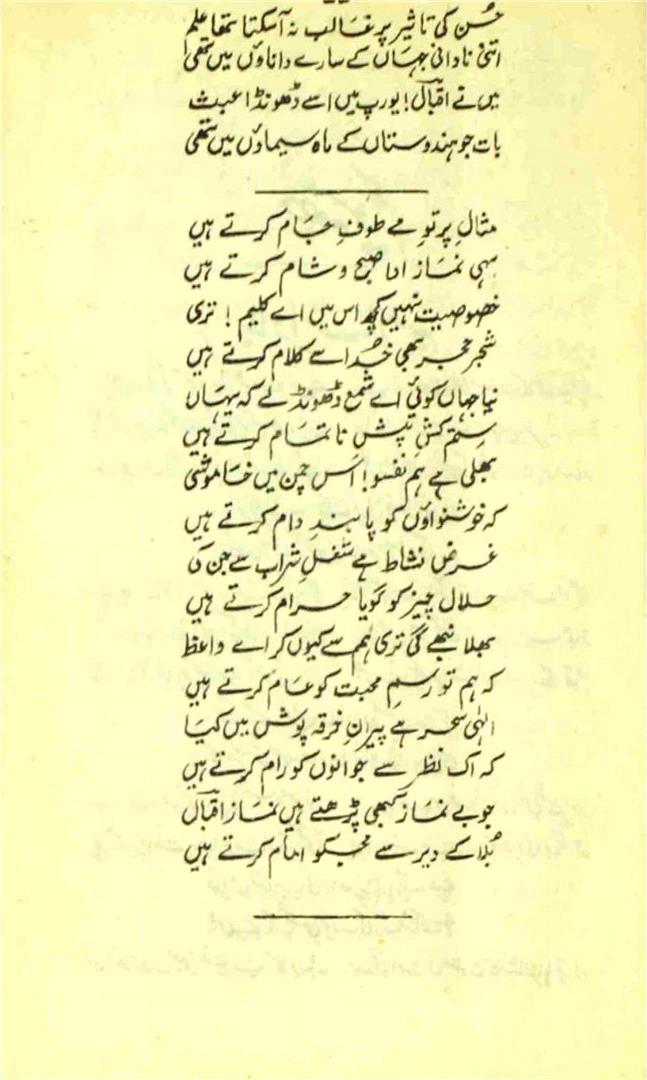 حُسن کی تاثیر پر غالب نہ آ سکتا تھا علم
اتنی نادانی جہاں کے سارے داناؤں میں تھی
میں نے اقبالؔ! یورپ میں اسے ڈھونڈا عبث
بات جو ہندوستاں کے ماہ سیماؤں میں تھی
مثالِ پرتوِ مے طوفِ جام کرتے ہیں
یہی نماز ادا صبح و شام کرتے ہیں
خصوصیت نہیں کچھ اس میں اے کلیم! تری
شجر حجر بھی خُدا سے کلام کرتے ہیں
نیا جہاں کوئی اے شمع ڈھونڈئیے کہ یہاں
ستم کشِ تپشِ ناتمام کرتے ہیں
بھلی ہے ہم نفسو! اس چمن میں خاموشی
کہ خوشنواؤں کو پابندِ دام کرتے ہیں
غرض نشاط ہے شغلِ شراب سے جن کی
حلال چیز کو گویا حرام کرتے ہیں
بھلا نبھے گی تری ہم سے کیوں کر اے واعظ
کہ ہم تو رسمِ محبت کو عام کرتے ہیں
الٰہی سحر ہے پیرانِ خرقہ پوش میں کیا
کہ اک نظر سے جوانوں کو رام کرتے ہیں
جو بے نماز کبھی پڑھتے ہیں نماز اقبالؔ
بُلا کے دیر سے مجھکو امام کرتے ہیں